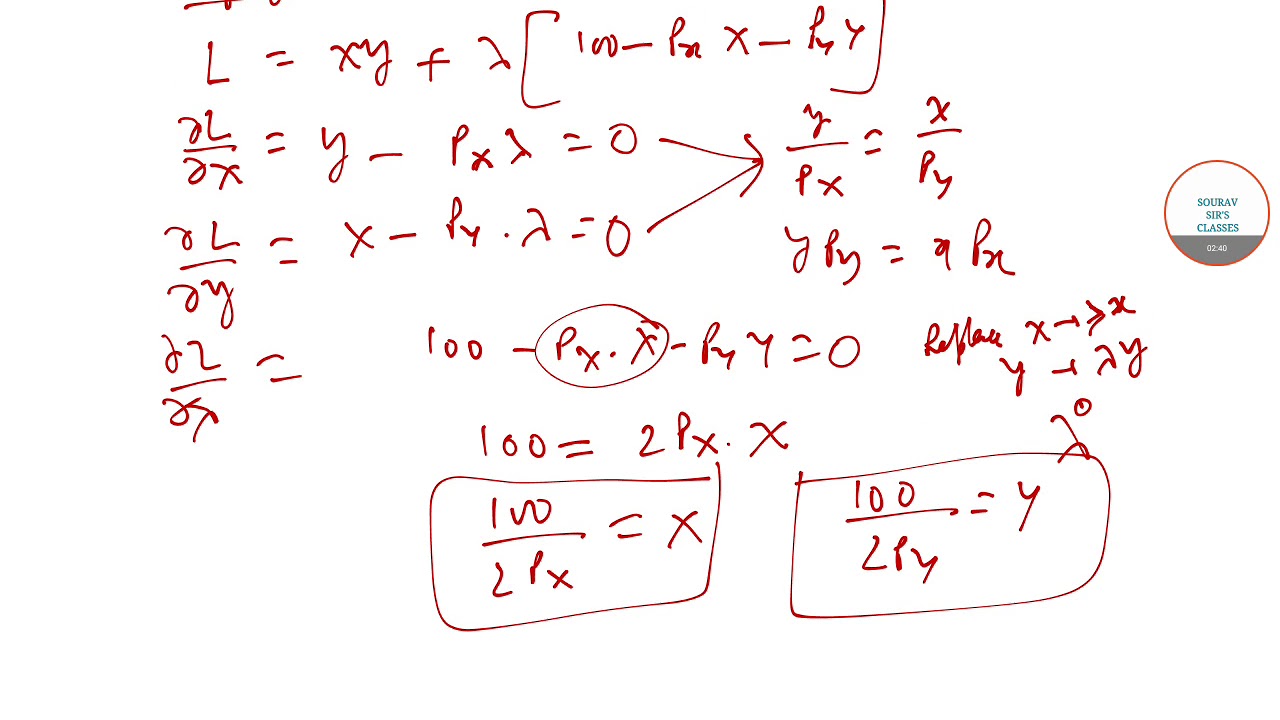 L = xy + λ[100 - Px X - Py Y]
∂L/∂X = y - PX λ = 0
y/PX = x/Py
∂L/∂y = X - PY . λ = 0
y Py = x Px
∂L/∂λ = 100 - PX . X - PY Y = 0
Replace x → λx
y → λy
100 = 2PX . X
λ⁰
100/2PX = X
100/2Py = Y
SOURAV
SIR'S
CLASSES
02:40